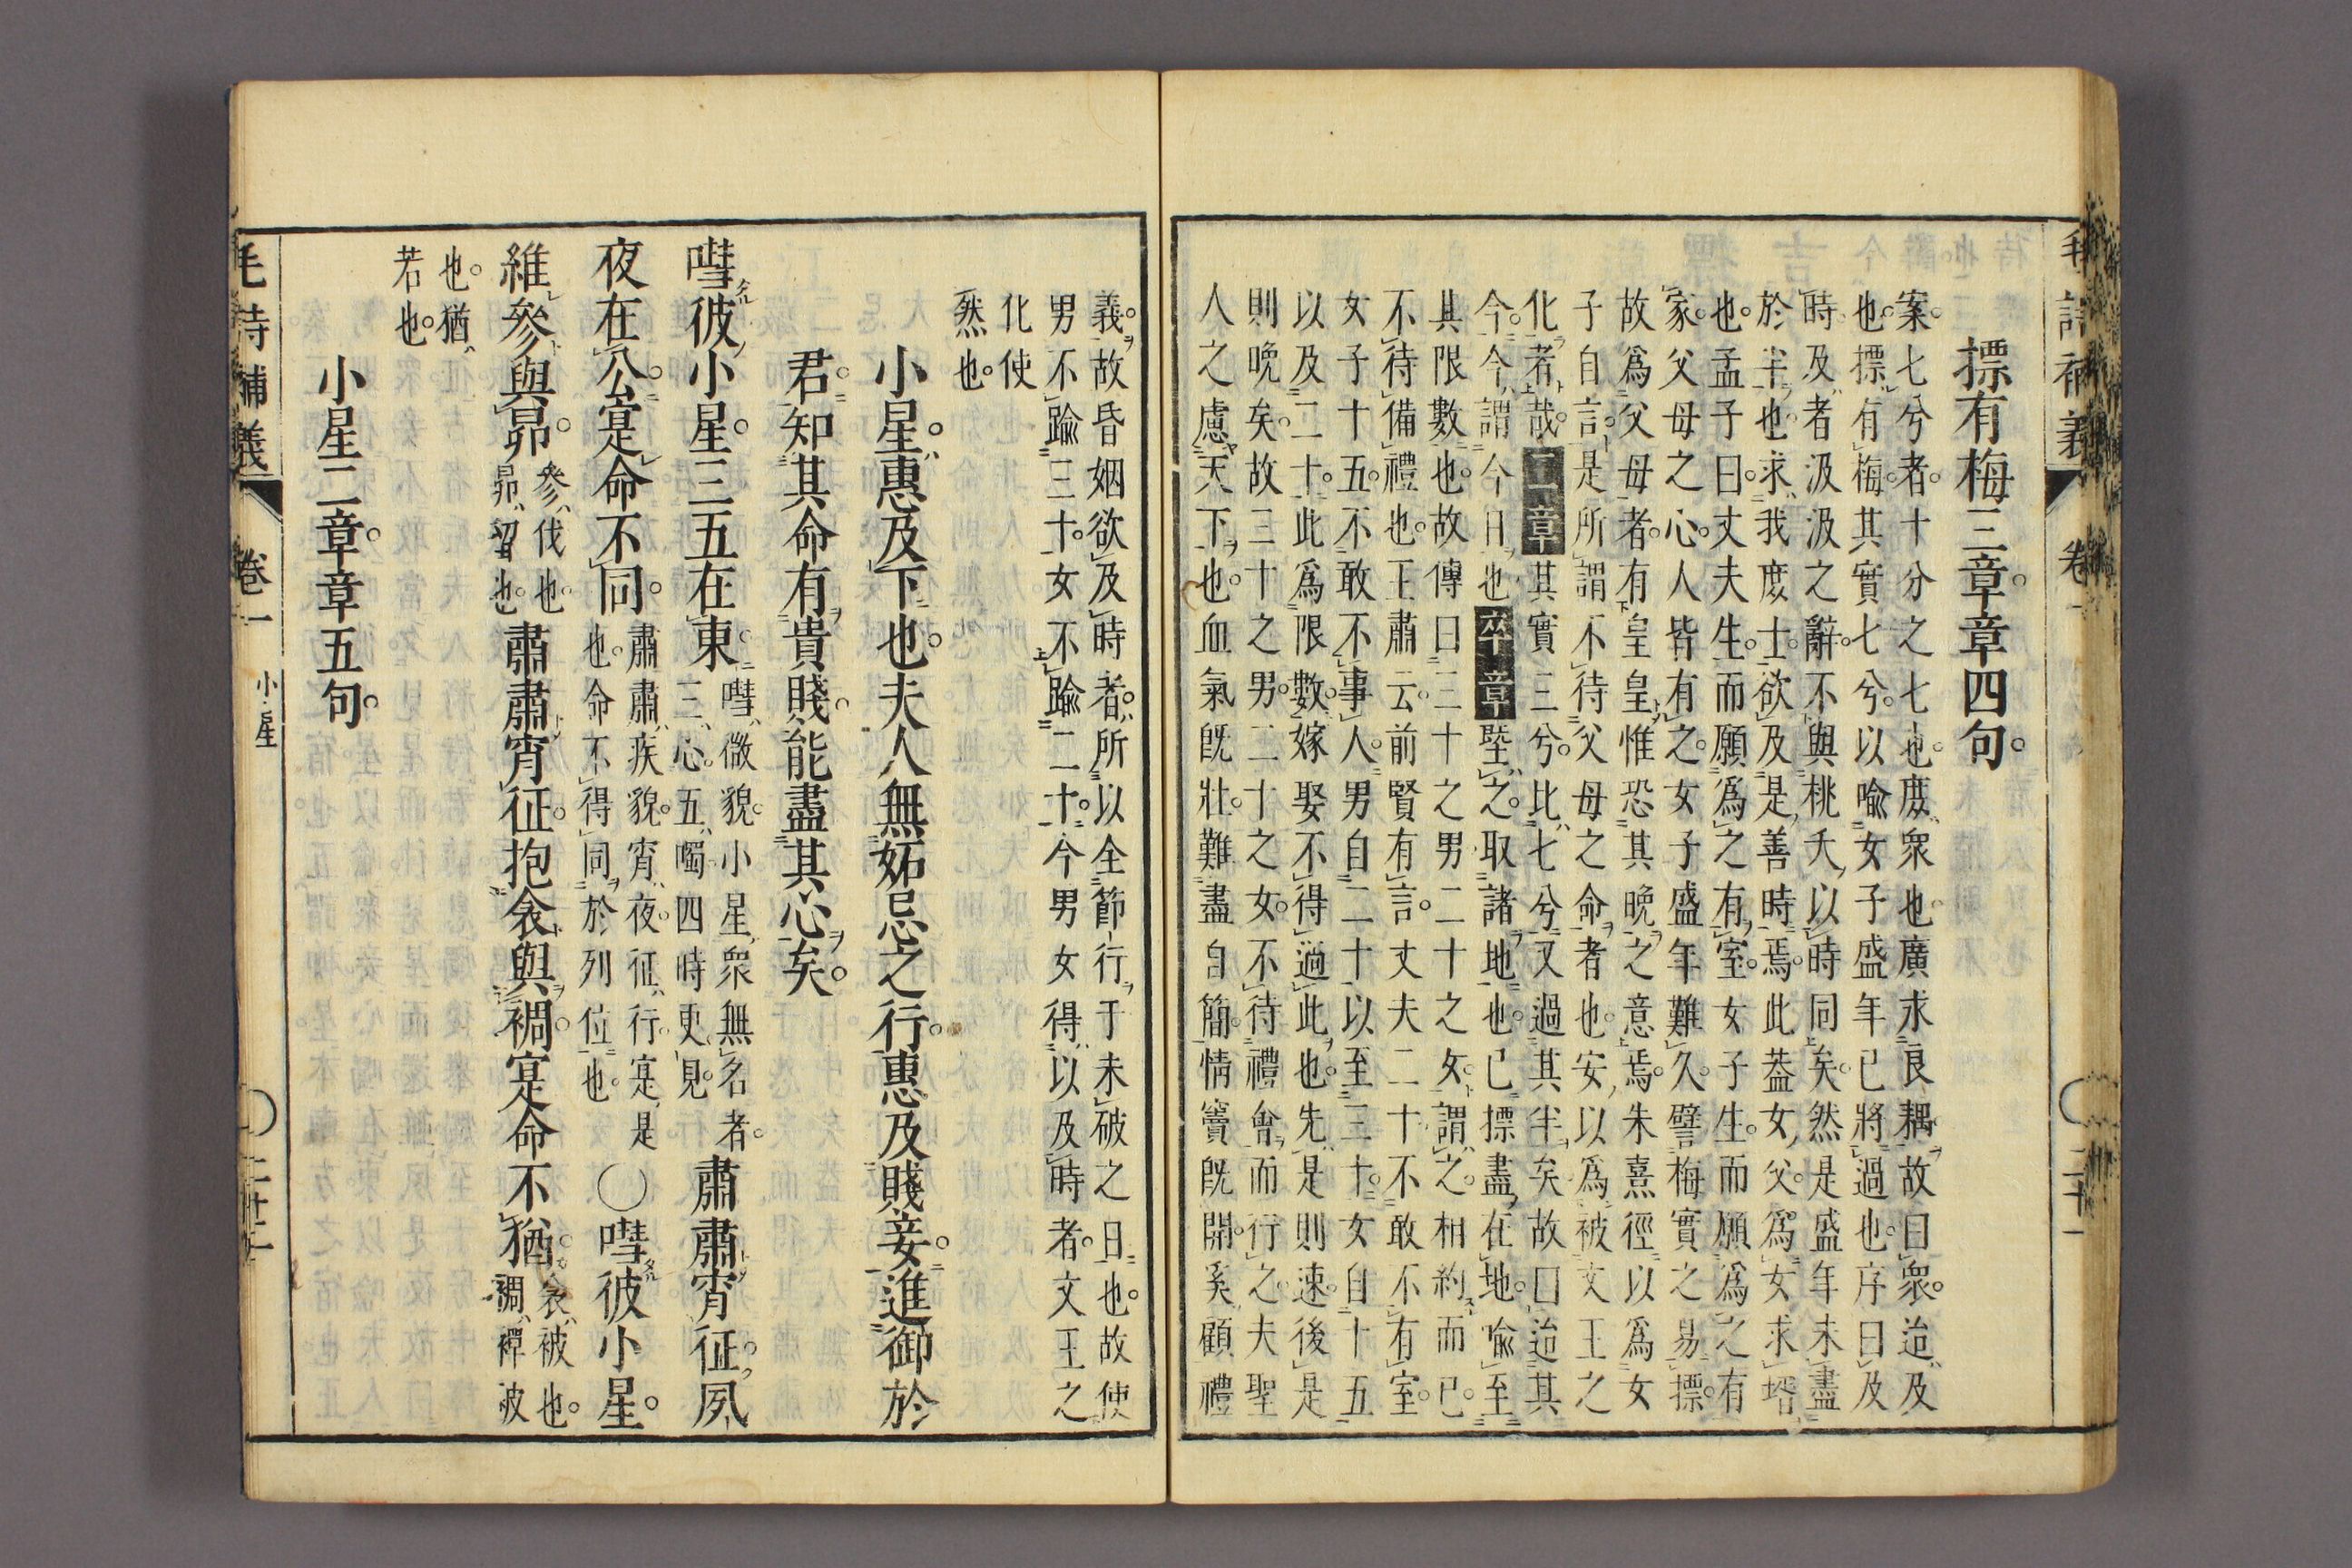 毛詩補義 卷一 二十一
摽有梅三章章四句
案七兮者十分之七也庶衆也廣求良耦故曰衆迨及
也摽有梅其實七兮以喩女子盛年已將過也序曰及
時及者汲汲之辭不與桃夭以時同矣然是盛年未盡
於半也求我庶士欲及是善時焉此葢女父爲女求壻
也孟子曰丈夫生而願爲之有室女子生而願爲之有
家父母之心人皆有之女子盛年難久譬梅實之易摽
故爲父母者有皇皇惟恐其晩之意焉朱熹徑以爲女
子自言是所謂不待父母之命者也安以爲被文王之
化者哉二章其實三兮比七兮又過其半矣故曰迨其
今今謂今日也卒章墍之取諸地也已摽盡在地喩至
其限數也故傳曰三十之男二十之女謂之相約而已
不待備禮也王肅云前賢有言丈夫二十不敢不有室
女子十五不敢不事人男自二十以至三十女自十五
以及二十此爲限數嫁娶不得過此也先是則速後是
則晩矣故三十之男二十之女不待禮會而行之夫聖
人之慮天下也血氣旣壯難盡自簡情竇旣開奚顧禮
義故昏姻欲及時者所以全節行于未破之日也故使
男不踰三十女不踰二十今男女得以及時者文王之
化使
然也
小星惠及下也夫人無妬忌之行惠及賤妾進御於
君知其命有貴賤能盡其心矣
嘒彼小星三五在東嘒微貌小星衆無名者三心五噣四時更見肅肅宵征夙
夜在公寔命不同肅肅疾貌宵夜征行寔是也命不得同於列位也〇嘒彼小星
維參與昴參伐也昴留也肅肅宵征抱衾與裯寔命不猶衾被也裯襌被
也猶
若也
小星二章章五句
毛詩補義 卷一 小星 二十二